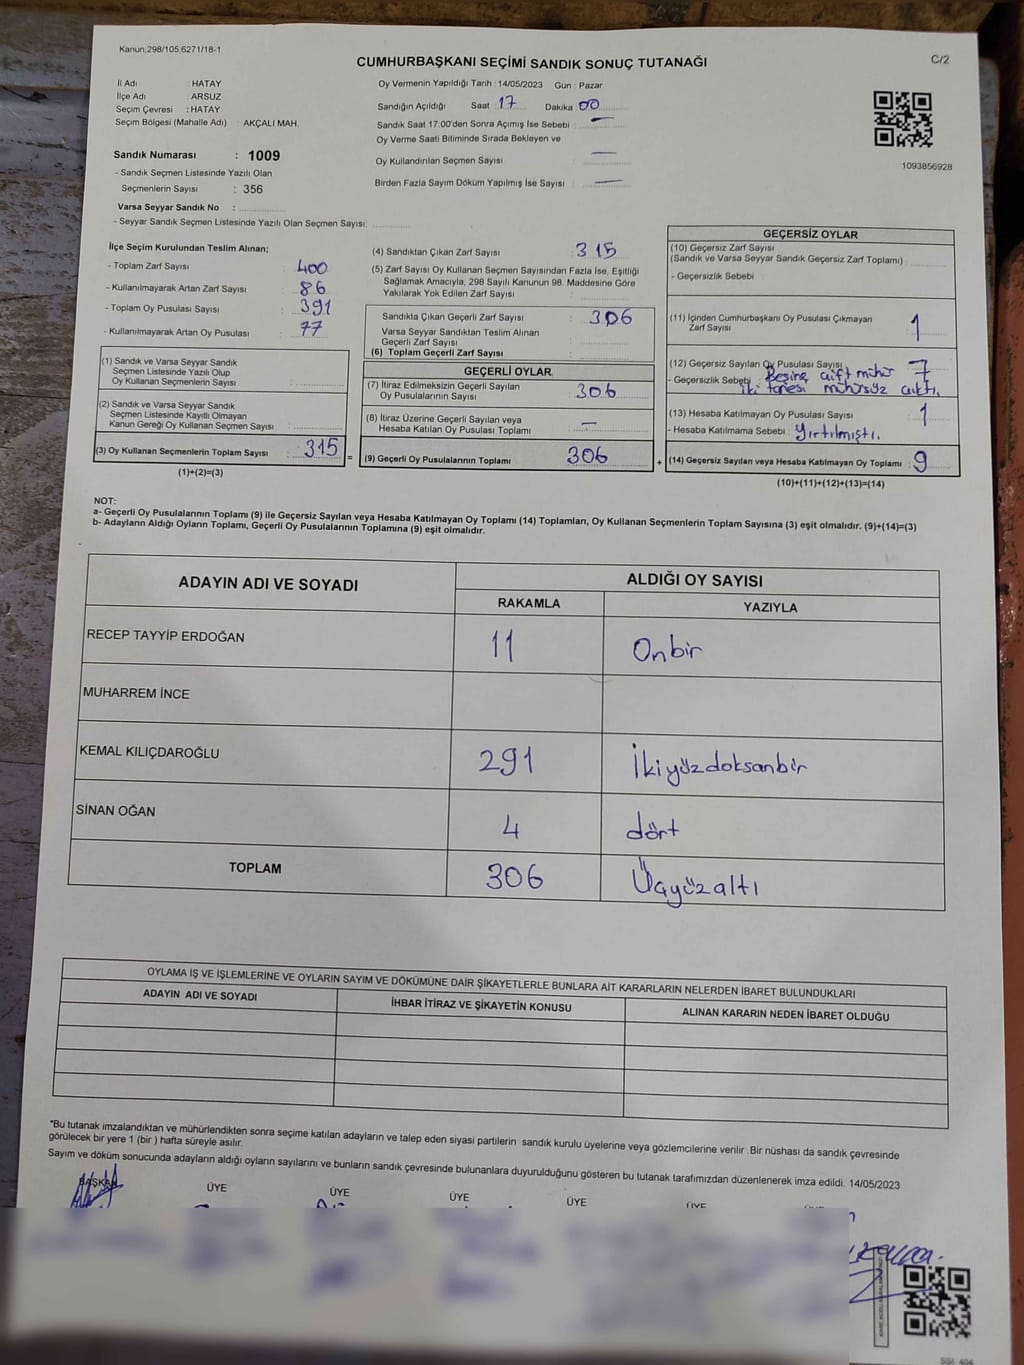 Kanun;298/105;6271/18-1
CUMHURBAŞKANI SEÇİMİ SANDIK SONUÇ TUTANAĞI
C/2
İl Adı : HATAY
İlçe Adı : ARSUZ
Seçim Çevresi : HATAY
Seçim Bölgesi (Mahalle Adı) : AKÇALI MAH.
Sandık Numarası : 1009
- Sandık Seçmen Listesinde Yazılı Olan
Seçmenlerin Sayısı : 356
Varsa Seyyar Sandık No :
- Seyyar Sandık Seçmen Listesinde Yazılı Olan Seçmen Sayısı:
Oy Vermenin Yapıldığı Tarih : 14/05/2023 Gün : Pazar
Sandığın Açıldığı Saat : 17 Dakika : 00
Sandık Saat 17.00'den Sonra Açımış İse Sebebi : —
Oy Verme Saati Bitiminde Sırada Bekleyen ve
Oy Kullandırılan Seçmen Sayısı : —
Birden Fazla Sayım Döküm Yapılmış İse Sayısı : —
1093856928
İlçe Seçim Kurulundan Teslim Alınan;
- Toplam Zarf Sayısı : 400
- Kullanılmayarak Artan Zarf Sayısı : 86
- Toplam Oy Pusulası Sayısı : 391
- Kullanılmayarak Artan Oy Pusulası : 77
(1) Sandık ve Varsa Seyyar Sandık
Seçmen Listesinde Yazılı Olup
Oy Kullanan Seçmenlerin Sayısı :
(2) Sandık ve Varsa Seyyar Sandık
Seçmen Listesinde Kayıtlı Olmayan
Kanun Gereği Oy Kullanan Seçmen Sayısı :
(3) Oy Kullanan Seçmenlerin Toplam Sayısı : 315 =
(1)+(2)=(3)
(4) Sandıktan Çıkan Zarf Sayısı : 315
(5) Zarf Sayısı Oy Kullanan Seçmen Sayısından Fazla İse, Eşitliği
Sağlamak Amacıyla, 298 Sayılı Kanunun 98. Maddesine Göre
Yakılarak Yok Edilen Zarf Sayısı :
Sandıkta Çıkan Geçerli Zarf Sayısı : 306
Varsa Seyyar Sandıktan Teslim Alınan
Geçerli Zarf Sayısı :
(6) Toplam Geçerli Zarf Sayısı :
GEÇERLİ OYLAR
(7) İtiraz Edilmeksizin Geçerli Sayılan
Oy Pusulalarının Sayısı : 306
(8) İtiraz Üzerine Geçerli Sayılan veya
Hesaba Katılan Oy Pusulası Toplamı : —
(9) Geçerli Oy Pusulalarının Toplamı : 306 +
GEÇERSİZ OYLAR
(10) Geçersiz Zarf Sayısı
(Sandık ve Varsa Seyyar Sandık Geçersiz Zarf Toplamı) :
- Geçersizlik Sebebi :
(11) İçinden Cumhurbaşkanı Oy Pusulası Çıkmayan
Zarf Sayısı : 1
(12) Geçersiz Sayılan Oy Pusulası Sayısı : 7
- Geçersizlik Sebebi : Beşine çift mühür
iki tanesi mühürsüz çıktı.
(13) Hesaba Katılmayan Oy Pusulası Sayısı : 1
- Hesaba Katılmama Sebebi : Yırtılmıştı.
(14) Geçersiz Sayılan veya Hesaba Katılmayan Oy Toplamı : 9
(10)+(11)+(12)+(13)=(14)
NOT:
a- Geçerli Oy Pusulalarının Toplamı (9) ile Geçersiz Sayılan veya Hesaba Katılmayan Oy Toplamı (14) Toplamları, Oy Kullanan Seçmenlerin Toplam Sayısına (3) eşit olmalıdır. (9)+(14)=(3)
b- Adayların Aldığı Oyların Toplamı, Geçerli Oy Pusulalarının Toplamına (9) eşit olmalıdır.
ADAYIN ADI VE SOYADI ALDIĞI OY SAYISI
RAKAMLA YAZIYLA
RECEP TAYYİP ERDOĞAN 11 Onbir
MUHARREM İNCE
KEMAL KILIÇDAROĞLU 291 İkiyüzdoksanbir
SİNAN OĞAN 4 dört
TOPLAM 306 Üçyüzaltı
OYLAMA İŞ VE İŞLEMLERİNE VE OYLARIN SAYIM VE DÖKÜMÜNE DAİR ŞİKAYETLERLE BUNLARA AİT KARARLARIN NELERDEN İBARET BULUNDUKLARI
ADAYIN ADI VE SOYADI İHBAR İTİRAZ VE ŞİKAYETİN KONUSU ALINAN KARARIN NEDEN İBARET OLDUĞU
*Bu tutanak imzalandıktan ve mühürlendikten sonra seçime katılan adayların ve talep eden siyasi partilerin sandık kurulu üyelerine veya gözlemcilerine verilir .Bir nüshası da sandık çevresinde
görülecek bir yere 1 (bir ) hafta süreyle asılır.
Sayım ve döküm sonucunda adayların aldığı oyların sayılarını ve bunların sandık çevresinde bulunanlara duyurulduğunu gösteren bu tutanak tarafımızdan düzenlenerek imza edildi. 14/05/2023
BAŞKAN ÜYE ÜYE ÜYE ÜYE ÜYE